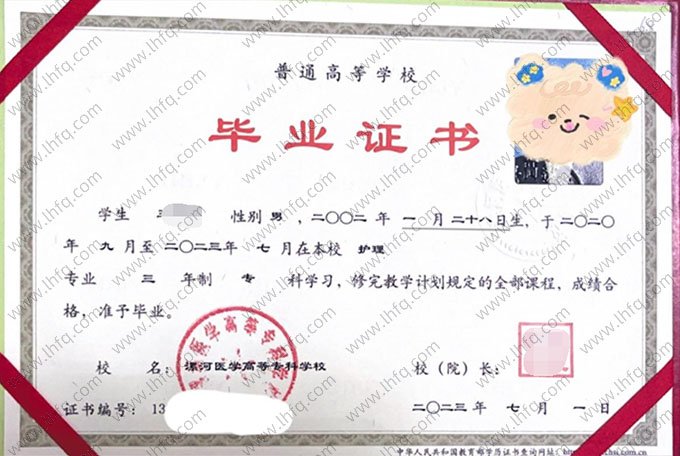 普通高等学校
毕业证书
学生 王 性别 男 ，二〇〇二年 一 月 二十八日生，于二〇二〇
年 九 月至 二〇二三年 七 月在本校 护理
专业 三 年制 专 科学习，修完教学计划规定的全部课程、成绩合
格，准予毕业。
校 名： 漯河医学高等专科学校 校（院）长：
证书编号：13 二〇二三年 七 月 一 日
中华人民共和国教育部学历证书查询网址：
www.lhfq.com